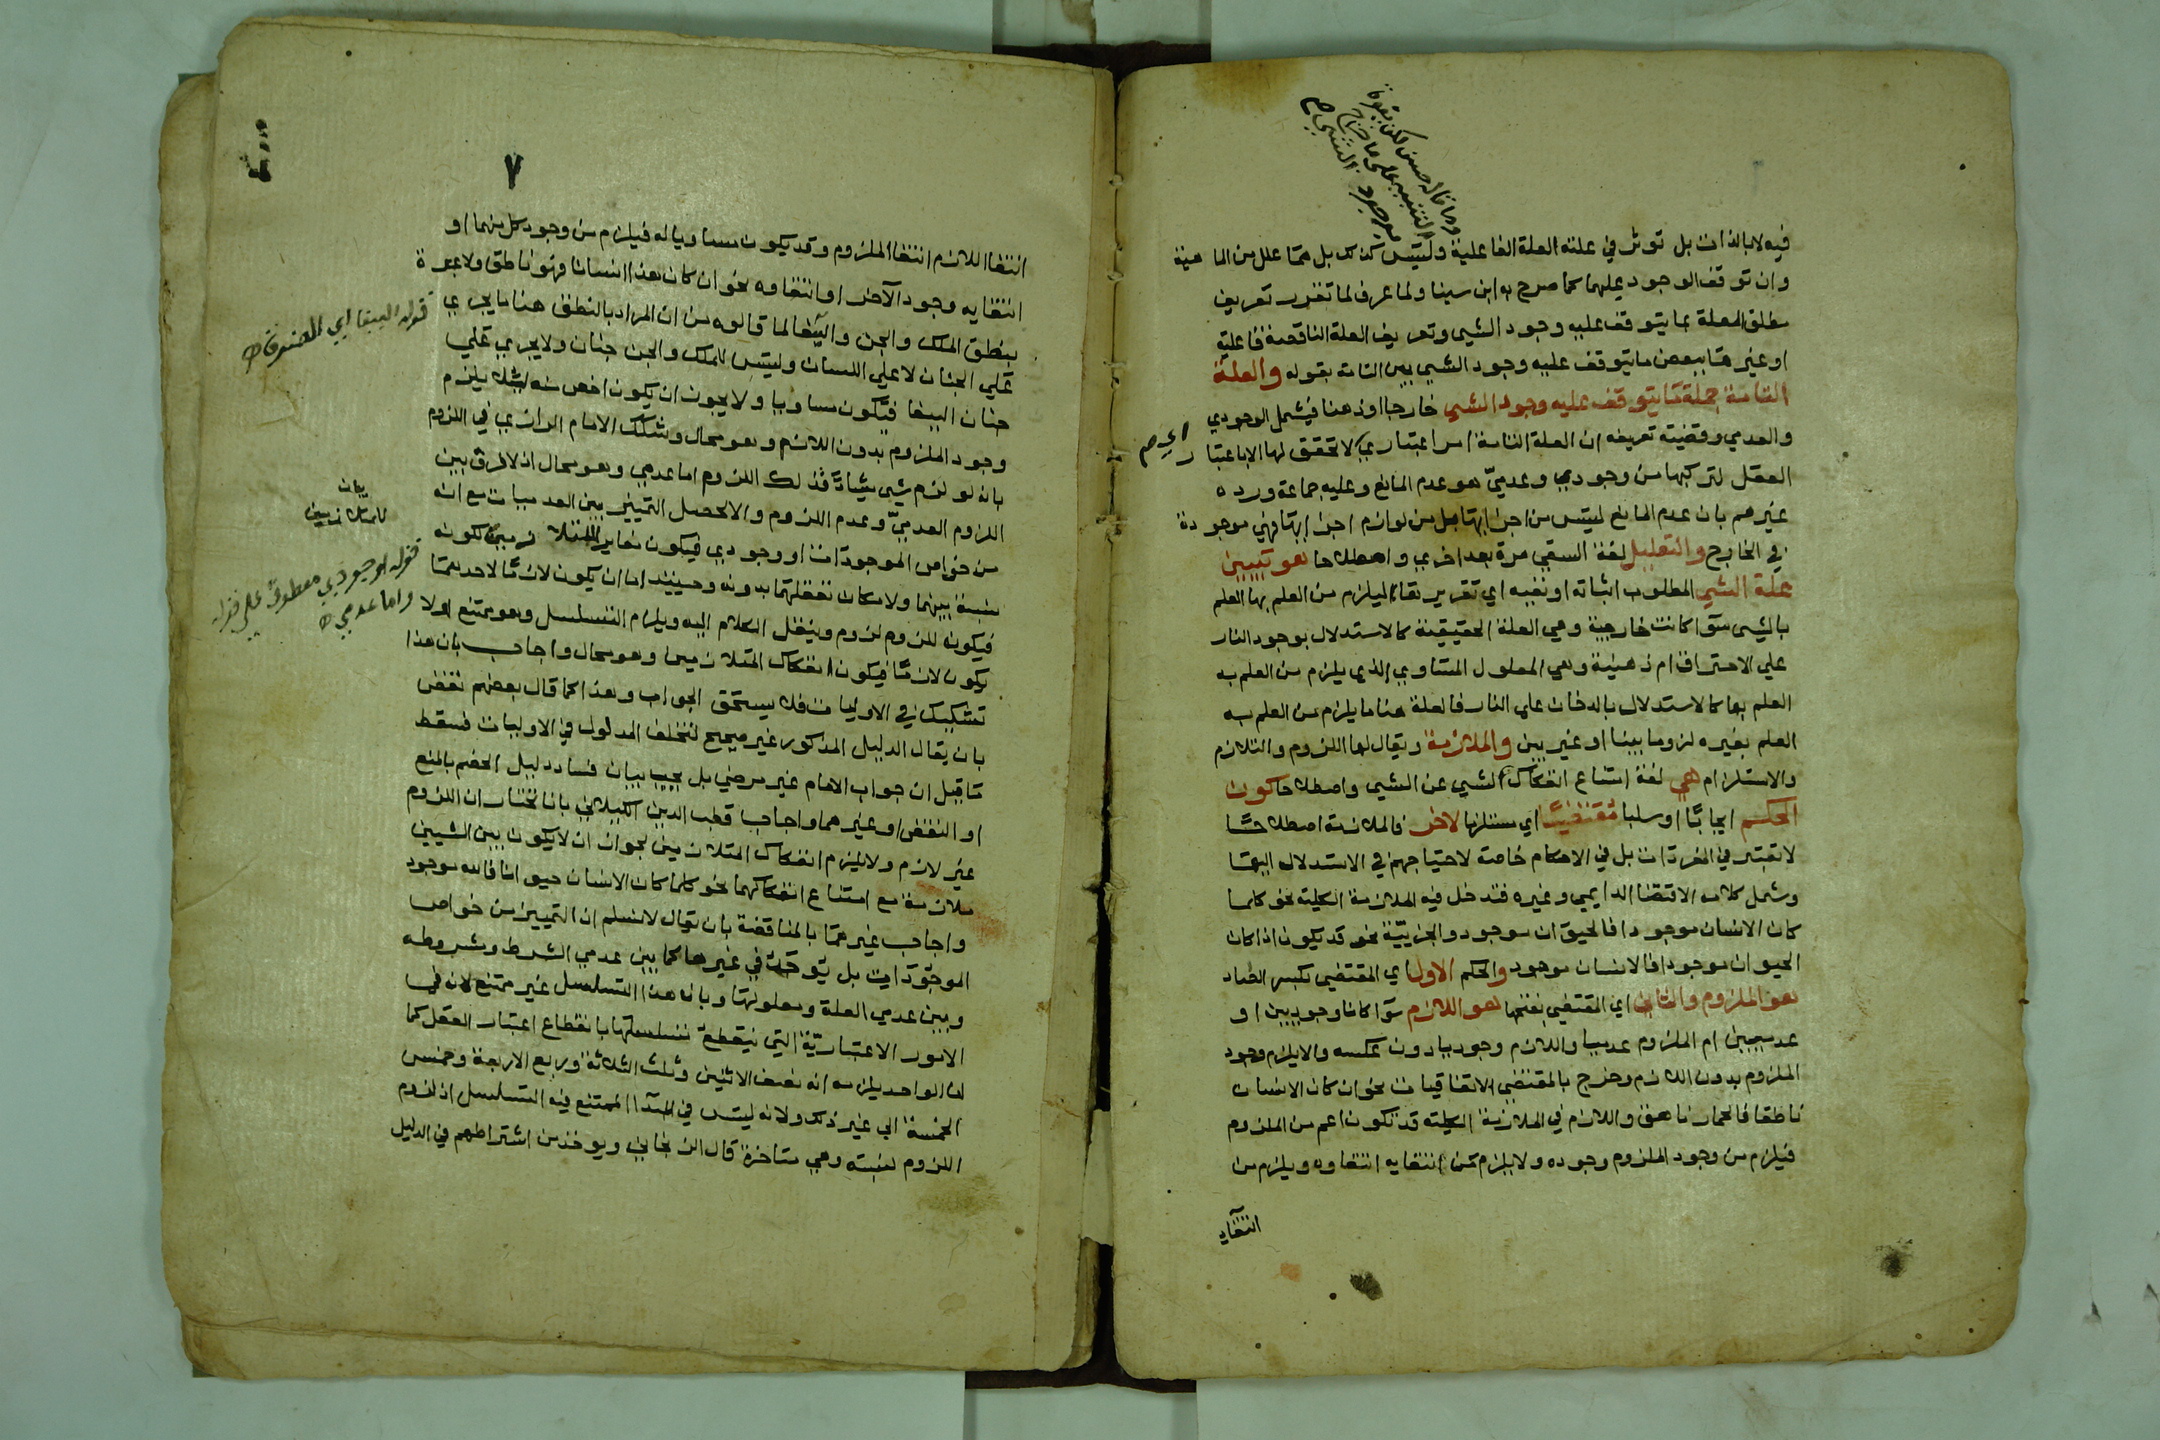 فيه لا بالذات بل توثر في علته العلة الفاعلية وليس كذلك بل هما علل من الماهية
وان توقف الوجود عليهما كما صرح به ابن سينا ولما عرف لما تقرر تعريف
مطلق العلة بما يتوقف عليه وجود الشي وتعريف العلة الناقصة فاعلية
او غيرها ببعض ما يتوقف عليه وجود الشي بين التامة بقوله والعلة
التامة جملة ما يتوقف عليه وجود الشي خارجا او ذهنا فيشمل الوجودي
والعدمي وقضية تعريفه ان العلة التامة امر اعتباري لا تحقق لها الا باعتبار
العقل لتركبها من وجودي وعدمي هو عدم المانع وعليه جماعة ورده
غيرهم بان عدم المانع ليس من اجزائها بل من لوازم اجزائها فهي موجودة
في الخارج والتعليل لغة السقي مرة بعد اخري واصطلاحا هو تبيين
علة الشي المطلوب اثباته او نفيه اي تقرير ليلزم من العلم بها العلم
بالشي سوآ كانت خارجية وهي العلة الحقيقية كالاستدلال بوجود النار
علي الاحتراق ام ذهنية وهي المعلول المتساوي الذي يلزم من العلم به
العلم بها كالاستدلال بالدخان علي النار فالعلة هنا ما يلزم من العلم به
العلم بغيره لزوما بينا او غير بين والملازمة ويقال لها اللزوم والتلازم
والاستلزام هي لغة امتناع انفكاك الشي عن الشي واصطلاحا كون
الحكم ايجابا او سلبا مقتضيا اي مستلزما لاخر فالملازمة اصطلاحا
لا تعتبر في المفردات بل في الاحكام خاصة لاحتياجهم في الاستدلال اليها
وشمل كلامه الاقتضا الدايمي وغيره فتدخل فيه الملازمة الكلية نحو كلما
كان الانسان موجودا فالحيوان موجود والجزيية نحو قد يكون اذا كان
الحيوان موجودا فالانسان موجود والحكم الاول اي المقتضي بكسر الضاد
هو الملزوم والثاني اي المقتضي بفتحها هو اللازم سوآ كانا وجوديين او
عدميين ام الملزوم عدميا واللازم وجوديا دون عكسه والا يلزم وجود
الملزوم بدون اللازم وخرج بالمقتضي الاتفاقيات نحو ان كان الانسان
ناطقا فالحمار ناهق واللازم في الملازمة الكلية قد تكون اعم من الملزوم
فيلزم من وجود الملزوم وجوده ولا يلزم من انتفايه انتفاوه ويلزم من
٧
انتفا اللازم انتفا الملزوم وقد يكون مساويا له فيلزم من وجود كل منهما او
انتفايه وجود الآخر او انتفاوه نحو ان كان هذا انسانا فهو ناطق ولا عبرة
بنطق الملك والجن والببغا لما قالوه من ان المراد بالنطق هنا ما يجري
علي الجنان لا علي اللسان وليس للملك والجن جنان ولا يجري علي
جنان الببغا فيكون مساويا ولا يجوز ان يكون اخص منه ليلا يلزم
وجود الملزوم بدون اللازم وهو محال وشكك الامام الرازي في اللزوم
بانه لو لزم شي شيا فذلك اللزوم اما عدمي وهو محال اذ لا فرق بين
اللزوم العدمي وعدم اللزوم والا لحصل التمييز بين العدميات مع انه
من خواص الموجودات او وجودي فيكون مغايرا للمتلازمين لكونه
نسبة بينهما ولامكان تعقلهما بدونه وحينيذ اما ان يكون لازما لاحدهما
فيكون للزوم لزوم وينقل الكلام اليه ويلزم التسلسل وهو ممتنع اولا
يكون لازما فيكون انفكاك المتلازمين وهو محال واجاب بان هذا
تشكيك في الاوليات فلا يستحق الجواب وهذا كما قال بعضهم نقض
بان يقال الدليل المذكور غير صحيح لتخلف المدلول في الاوليات فسقط
ما قيل ان جواب الامام غير مرضي بل يجيب ببيان فساد دليل الخصم بالمنع
او النقض او غيرهما واجاب قطب الدين الكيلاني بانا نختار ان اللزوم
غير لازم ولا يلزم انفكاك المتلازمين لجواز ان لا يكون بين الشيين
ملازمة مع امتناع انفكاكهما نحو كلما كان الانسان حيوانا فالله موجود
واجاب غيرهما بالمناقضة بان يقال لا نسلم ان التمييز من خواص
الموجودات بل يوجد في غيرها كما بين عدمي الشرط ومشروطه
وبين عدمي العلة ومعلولها وبان هذا التسلسل غير ممتنع لانه في
الامور الاعتبارية التي ينقطع تسلسلها بانقطاع اعتبار العقل كما
ان الواحد يلزمه انه نصف الاثنين وثلث الثلاثة وربع الاربعة وخمس
الخمسة الي غير ذلك ولانه ليس في المبدا الممتنع فيه التسلسل اذ لزوم
اللزوم نسبته وهي متاخرة قال الزنجاني ويوخذ من اشتراطهم في الدليل
قوله الببغا اي
بيان
للمتلازمين
قوله او وجودي معطوف علي قوله
واما عدمي